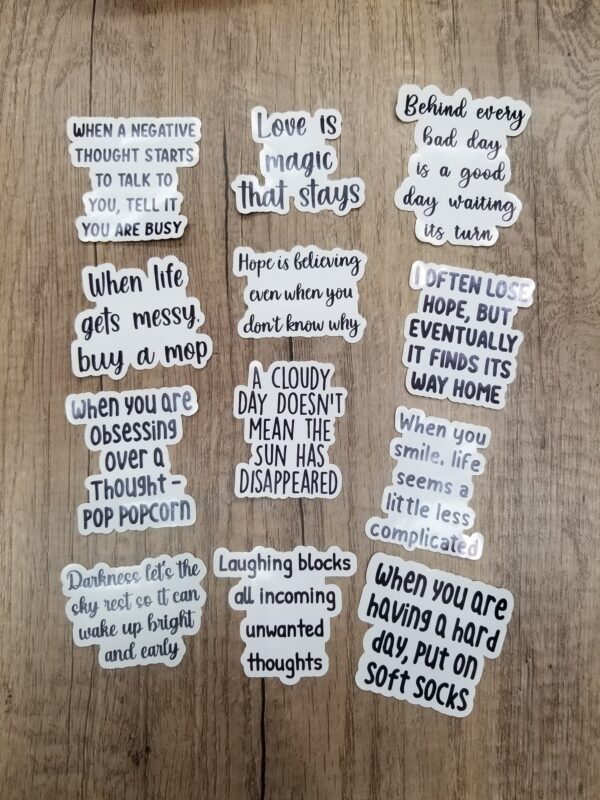 WHEN A NEGATIVE
THOUGHT STARTS
TO TALK TO
YOU, TELL IT
YOU ARE BUSY
Love is
magic
that stays
Behind every
bad day
is a good
day waiting
its turn
When life
gets messy,
buy a mop
Hope is believing
even when you
don't know why
I OFTEN LOSE
HOPE, BUT
EVENTUALLY
IT FINDS ITS
WAY HOME
When you are
Obsessing
over a
Thought -
POP POPCORN
A CLOUDY
DAY DOESN'T
MEAN THE
SUN HAS
DISAPPEARED
When you
smile, life
seems a
little less
complicated
Darkness let's the
sky rest so it can
wake up bright
and early
Laughing blocks
all incoming
unwanted
thoughts
When you are
having a hard
day, put on
soft socks